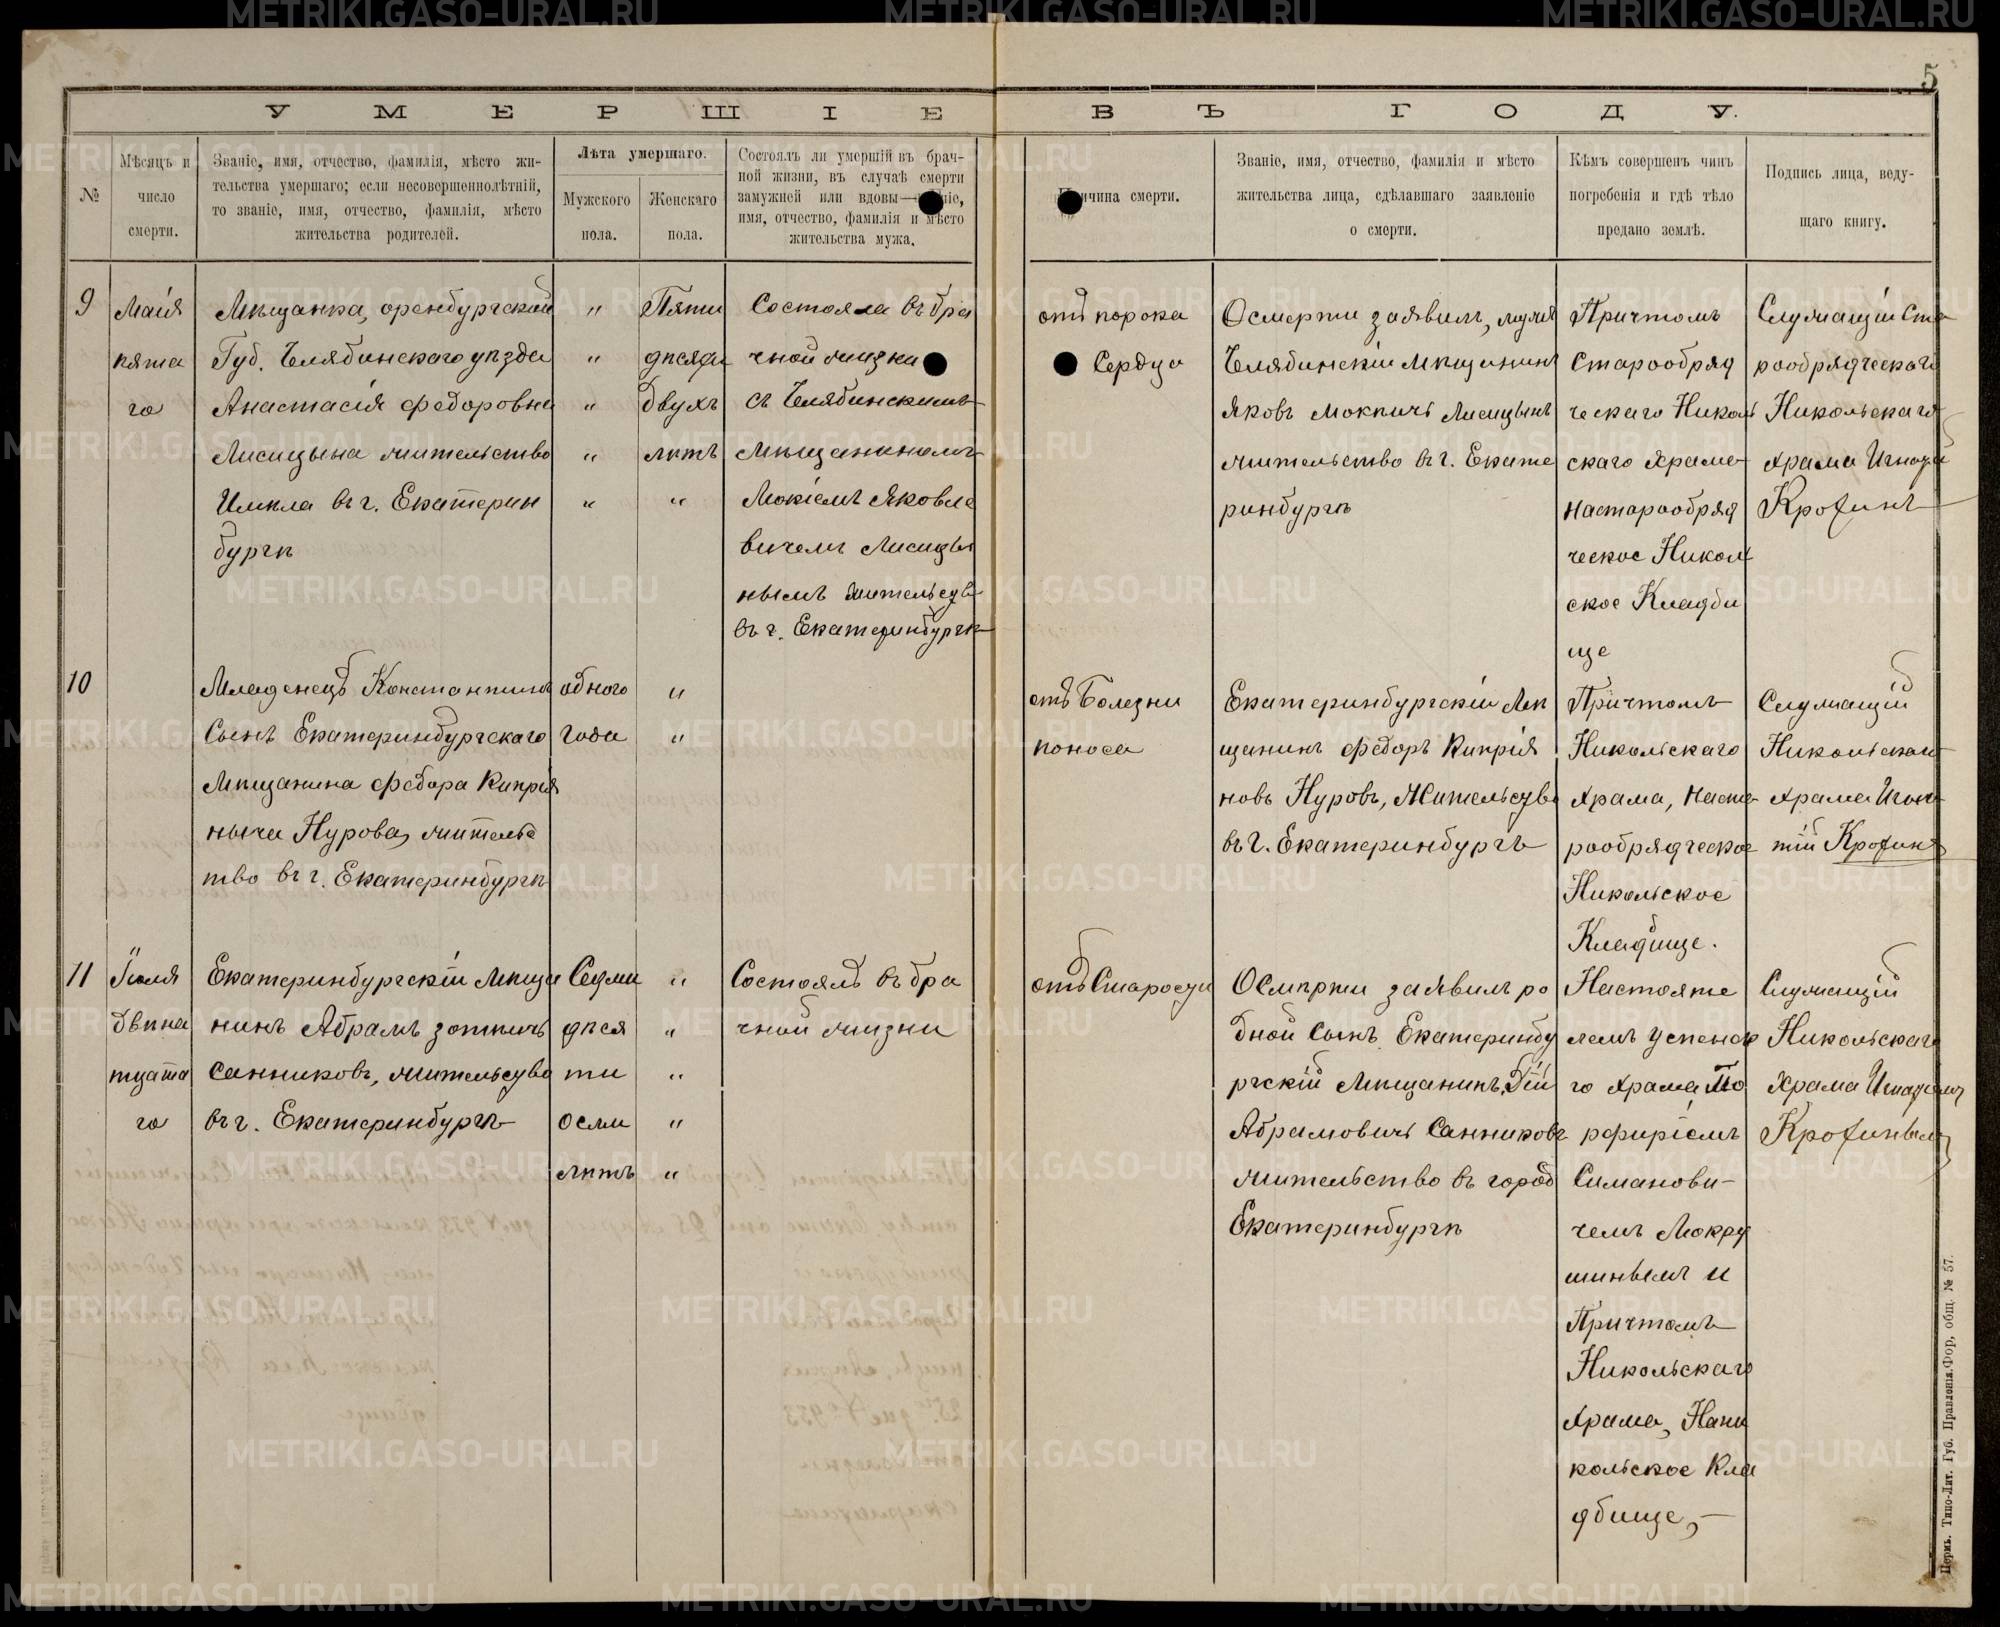 5
УМЕРШІЕ ВЪ ГОДУ.
№
Мѣсяцъ и
число
смерти.
Званіе, имя, отчество, фамилія, мѣсто жи-
тельства умершаго; если несовершеннолѣтній,
то званіе, имя, отчество, фамилія, мѣсто
жительства родителей.
Лѣта умершаго.
Мужского
пола.
Женскаго
пола.
Состоялъ ли умершій въ брач-
ной жизни, въ случаѣ смерти
замужней или вдовы—
имя, отчество, фамилія и мѣсто
жительства мужа.
чина смерти.
Званіе, имя, отчество, фамилія и мѣсто
жительства лица, сдѣлавшаго заявленіе
о смерти.
Кѣмъ совершенъ чинъ
погребенія и гдѣ тѣло
предано землѣ.
Подпись лица, веду-
щаго книгу.
9
Маія
пята
го
Мѣщанка, оренбургской
Губ. Челябинскаго уѣзда
Анастасія Федоровна
Лисицына жительство
Имѣла въ г. Екатерин
бургѣ
" " " " "
Пяти
дѣсяти
двухъ
лѣтъ
"
Состояла въ бра
чной жизни
съ Челябинскимъ
Мѣщаниномъ
Мокіемъ Яковле
вичемъ Лисицы
нымъ жительств
въ г. Екатеринбургѣ
отъ порока
Сердца
Осмерти заявилъ, мужъ
Челябинскій мѣщанинъ
Яковъ Мокѣичъ Лисицынъ
жительство въ г. Екате
ринбургѣ
Причтомъ
Старообряд
ческаго Николь
скаго Храма
настарообряд
ческое Николь
ское Кладби
ще
Служащій Ста
рообрядческаго
Никольскаго
храма
10
Младенецъ Константинъ
Сынъ Екатеринбургскаго
Мѣщанина Федора Кипрія
ныча Нурова, жительс
тво въ г. Екатеринбургѣ
одного
года
" "
отъ Болезни
поноса
Екатеринбургскій Мѣ
щанинъ Федоръ Кипрія
новъ Нуровъ, Жительств
въ Г. Екатеринбургъ
Причтомъ
Никольскаго
Храма, Наста
рообрядческое
Никольское
Кладбище.
Служащій
храма Игна
тій
11
Іюля
двѣна
тцата
го
Екатеринбургскій Мѣща
нинъ Абрамъ Зотѣичъ
Санниковъ, жительство
въ г. Екатеринбургѣ
Седми
дѣся
ти
осми
лѣтъ
" " " " "
Состоялъ въ бра
чной жизни
отъ Старости
Осмѣрти заявилъ ро
дной Сынъ Екатеринбу
ргскій Мѣщанинъ,
Абрамовичъ Санниковъ
жительство въ город
Екатеринбургѣ
Настояте
лемъ Успенск
го храма По
рфиріемъ
Симанови-
чемъ Мокру
шинымъ и
Причтомъ
Никольскаго
храма, Нани
кольское Кла
дбище,—
Служащій
Никольскаго
Храма
Пермь. Типо-Лит. Губ. Правленія. Фор. общ. № 57.
METRIKI.GASO-URAL.RU